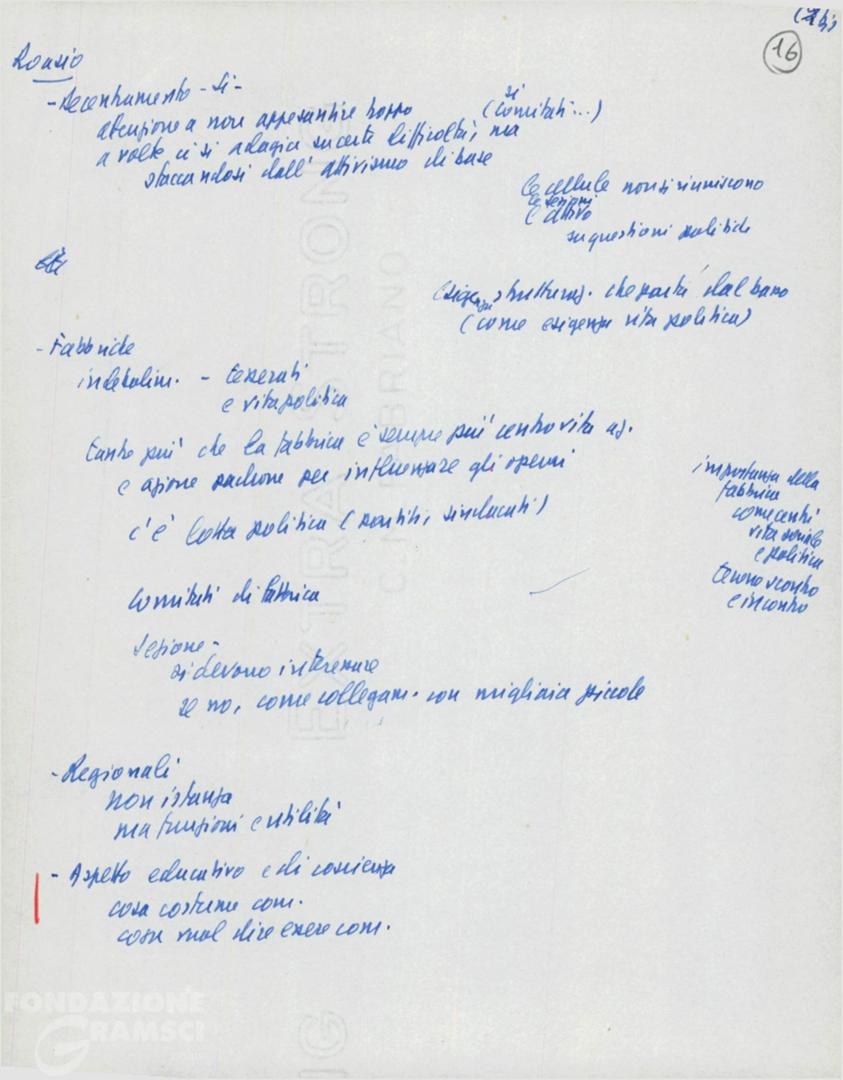 16
Roasio
- Decentramento - Si -
attenzione a non appesantire troppo (si comitati...)
a volte ci si adagia su certe difficoltà, ma
staccandosi dall'attivismo di base
le cellule non si riuniscono
le sezioni
l'attivo
su questioni politiche
esigenza strutturaz. che parta dal basso
(come esigenza vita politica)
- Fabbriche
indebolim. - tesserati
e vita politica
tanto più che la fabbrica è sempre più centro vita az.
e azione padrone per influenzare gli operai
c'è lotta politica (partiti, sindacati)
importanza della
fabbrica
come centri
vita sociale
e politica
terreno scontro
e incontro
Comitati di fabbrica
Sezione -
si devono interessare
se no, come collegam. con migliaia piccole
- Regionali
non istanza
ma funzioni e utilità
- Aspetto educativo e di coscienza
cosa costume com.
cosa vuol dire essere com.
EXTRA STRONG
FABRIANO
FONDAZIONE
GRAMSCI